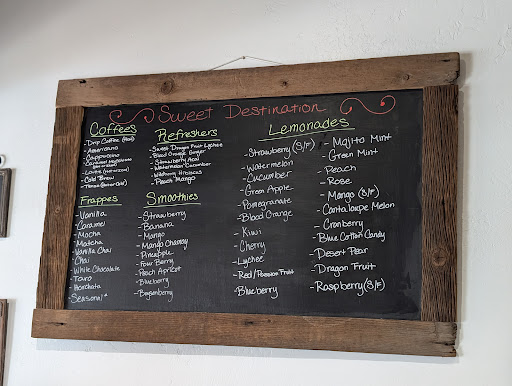 Sweet Destination
Coffees
- Drip Coffee (Hot)
- Americano
- Cappuccino
- Caramel Macchiato
- Cold Brew
Frappes
- Vanilla
- Caramel
- Mocha
- Matcha
- Vanilla Chai
- Chai
- White Chocolate
- Taro
- Horchata
- Seasonal*
Refreshers
- Sweet Dragon Fruit Lychee
- Blood Orange Ginger
- Strawberry Acai
- Watermelon Cucumber
- Wildberry Hibiscus
- Peach Mango
Smoothies
- Strawberry
- Banana
- Mango
- Mango Chamoy
- Pineapple
- Four Berry
- Peach Apricot
- Blueberry
- Boysenberry
Lemonades
- Strawberry (S/F)
- Watermelon
- Cucumber
- Green Apple
- Pomegranate
- Blood Orange
- Kiwi
- Cherry
- Lychee
- Red/Passion Fruit
- Blueberry
- Mojito Mint
- Green Mint
- Peach
- Rose
- Mango (S/F)
- Cantaloupe Melon
- Cranberry
- Blue Cotton Candy
- Desert Pear
- Dragon Fruit
- Raspberry (S/F)